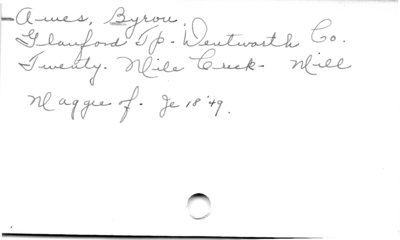 Ames, Byron.
Glanford Tp. - Wentworth Co.
Twenty. Mile Creek - Mill
Maggie f. Je 18 '49.